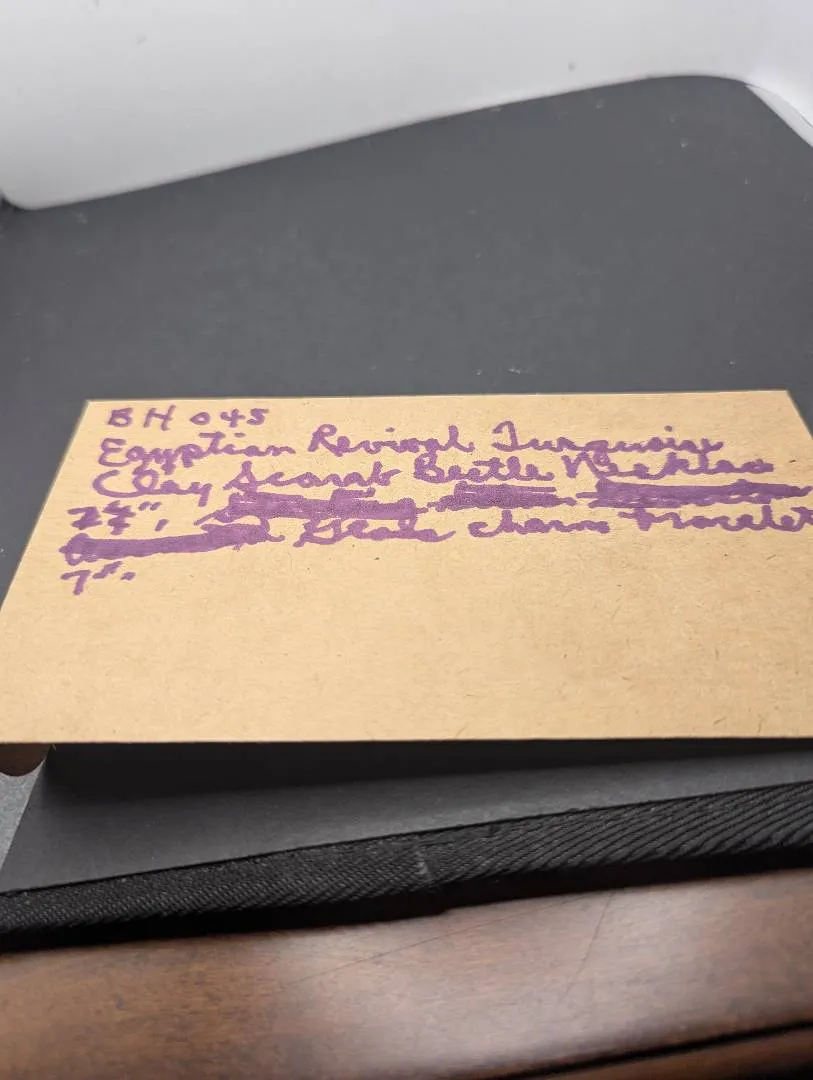 BH 045
Egyptian Revival Turquoise
Clay Scarab Beetle Necklace
charm bracelet
7".